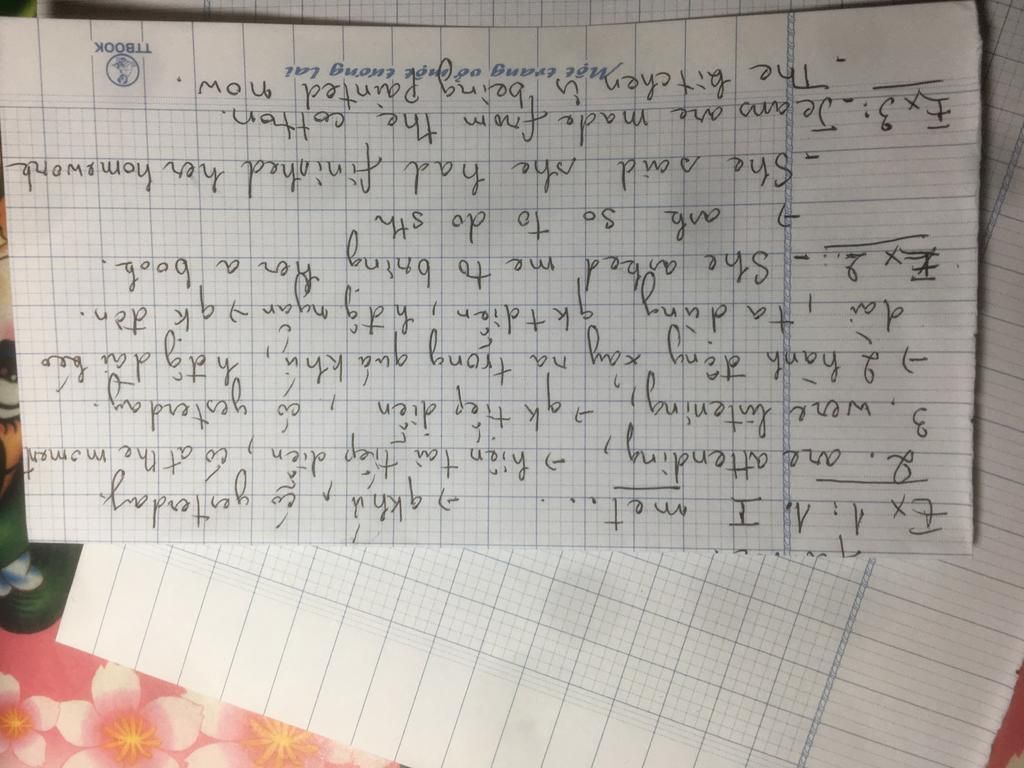 Ex 1: 1. I met... → qkhứ, có yesterday.
2. are attending, → hiện tại tiếp diễn, có at the moment
3. were listening, → qk tiếp diễn, có yesterday.
→ 2 hành động xảy ra trong quá khứ, hđg dài bị
dài, ta dùng qk tdiễn, hđg ngắn → qk đơn.
Ex 2: - She asked me to bring her a book.
→ ask so to do sth
- She said she had finished her homework
Ex 3: - Jeans are made from the cotton.
- The kitchen is being painted now.
Một trang vở một tương lai
TTBOOK